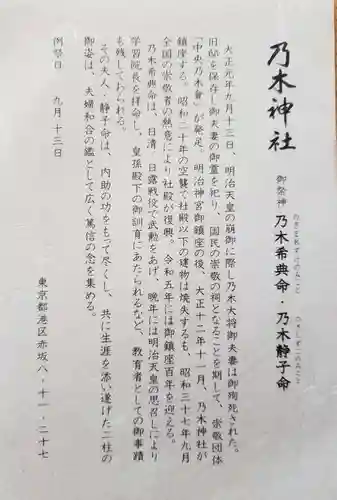 乃木神社
御祭神 乃木希典命・乃木静子命
のぎまれすけのみこと
のぎしずこのみこと
大正元年九月十三日、明治天皇の崩御に際し乃木大将御夫妻は御殉死された。
旧邸を保存し御夫妻の御霊を祀り、国民の崇敬の祠となることを期して、崇敬団体
「中央乃木會」が発足。明治神宮御鎮座の後、大正十二年十一月、乃木神社が
鎮座する。昭和二十年の空襲で社殿以下の建物は焼失するも、昭和三十七年九月
全国の崇敬者の熱意により社殿が復興。令和五年には御鎮座百年を迎える。
乃木希典命は、日清、日露戦役で武勲をあげ、晩年には明治天皇の思召しにより
学習院長を拝命し、皇孫殿下の御訓育にあたられるなど、教育者としての御事蹟
も残しておられる。
その夫人・静子命は、内助の功をもって尽くし、共に生涯を添い遂げた二柱の
御姿は、夫婦和合の鑑として広く篤信の念を集める。
例祭日 九月十三日
東京都港区赤坂八・十一・二十七